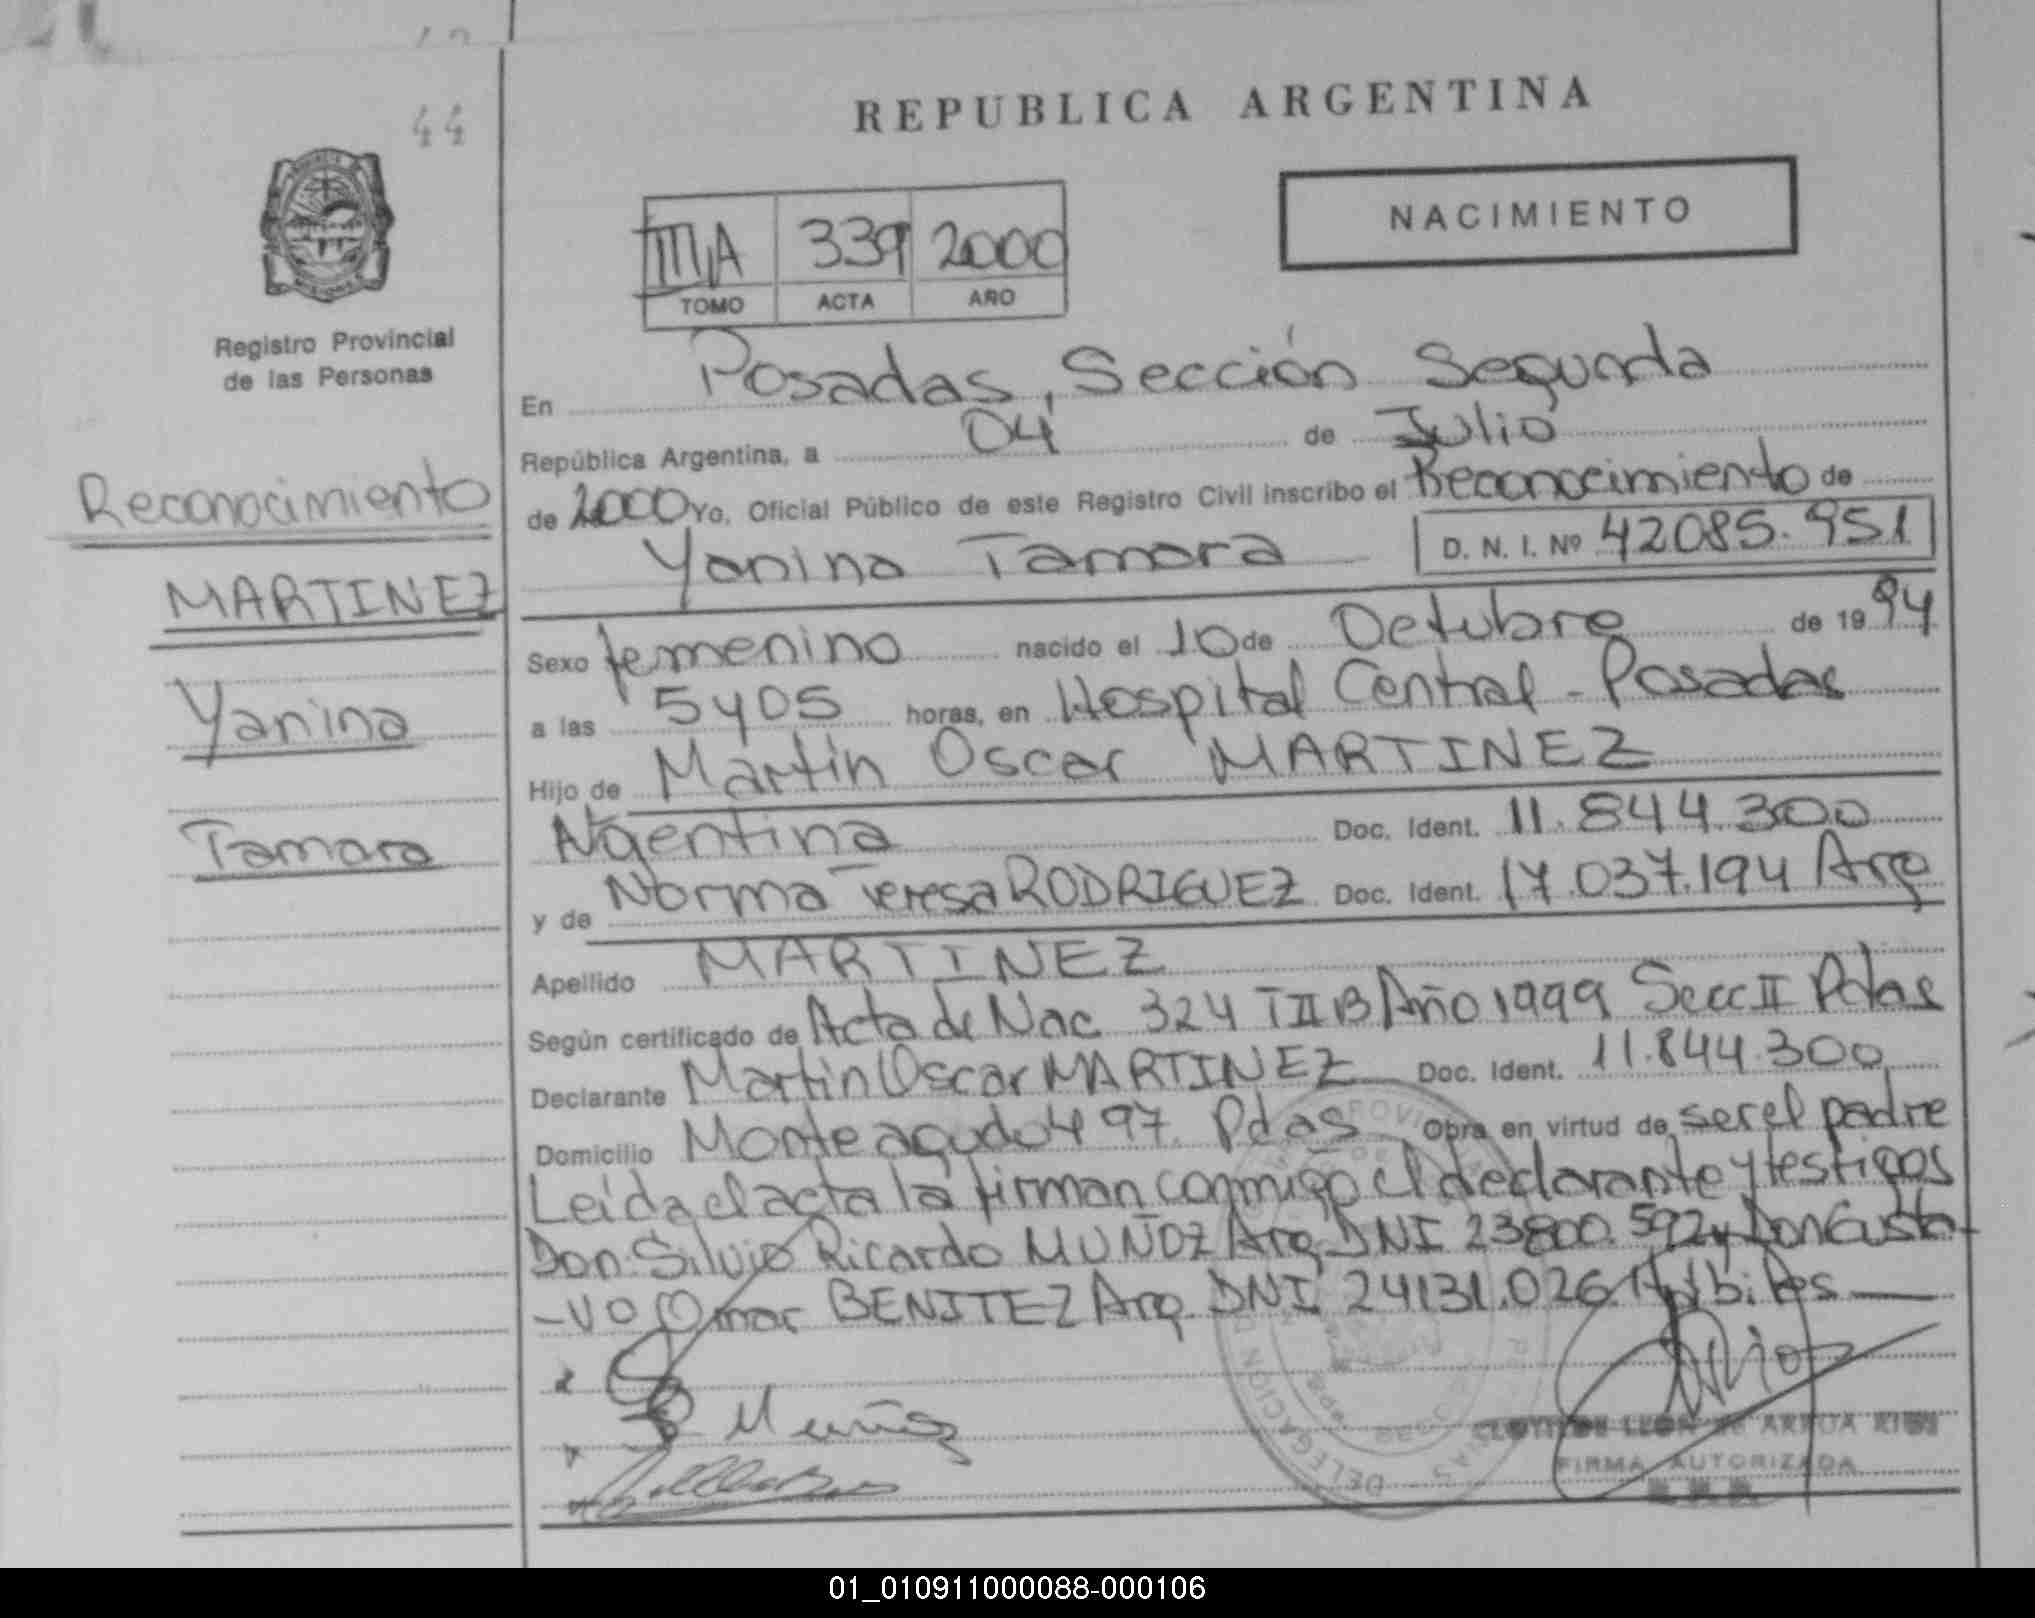 44
REPUBLICA ARGENTINA
NACIMIENTO
IIIA 339 2000
TOMO ACTA AÑO
Registro Provincial
de las Personas
Reconocimiento
MARTINEZ
Yanina
Tamara
En Posadas, Sección Segunda
República Argentina, a 04 de Julio
de 2000 Yo, Oficial Público de este Registro Civil inscribo el Reconocimiento de
Yanina Tamara D. N. I. Nº 42085.951
Sexo femenino nacido el 10 de Octubre de 1994
a las 5y05 horas, en Hospital Central - Posadas
Hijo de Martin Oscar MARTINEZ
Argentina Doc. Ident. 11.844.300
y de Norma Teresa RODRIGUEZ Doc. Ident. 17.037.194 Arg
Apellido MARTINEZ
Según certificado de Acta de Nac 324 T II B Año 1999 Secc II Pdas
Declarante Martin Oscar MARTINEZ Doc. Ident. 11.844.300
Domicilio Monteagudo 497 Pdas Obra en virtud de ser el padre
Leida el acta la firman conmigo el declarante y testigos
Don Silvio Ricardo MUÑOZ Arg DNI 23800.592 y Don Gusta
-vo Omar BENITEZ Arg. DNI 24131.026. Hábiles
Muñoz
CLOTILDE LEON de ARRUA RIOS
FIRMA AUTORIZADA
DELEGACION
01_010911000088-000106